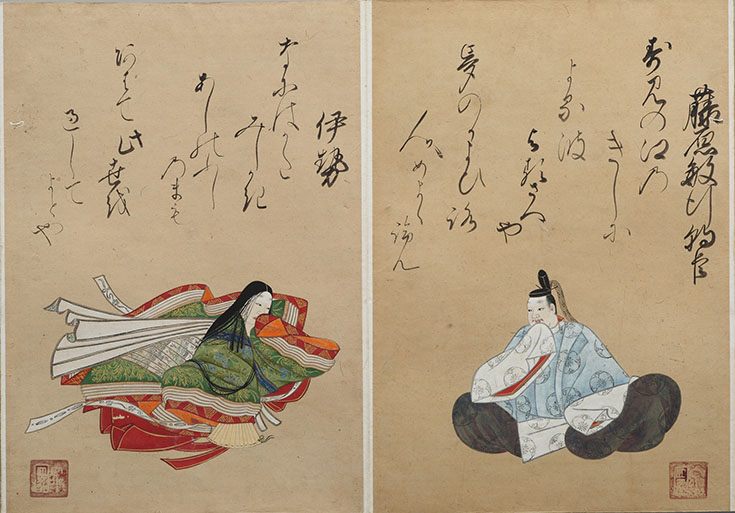 藤原敏行朝臣
寿見の江乃
きしに
よる波
よるさへ
や
夢のかよひ路
人めよくらん
伊勢
なにはかた
みしかき
あしのふし
乃まも
あはて此世を
過して
よとや